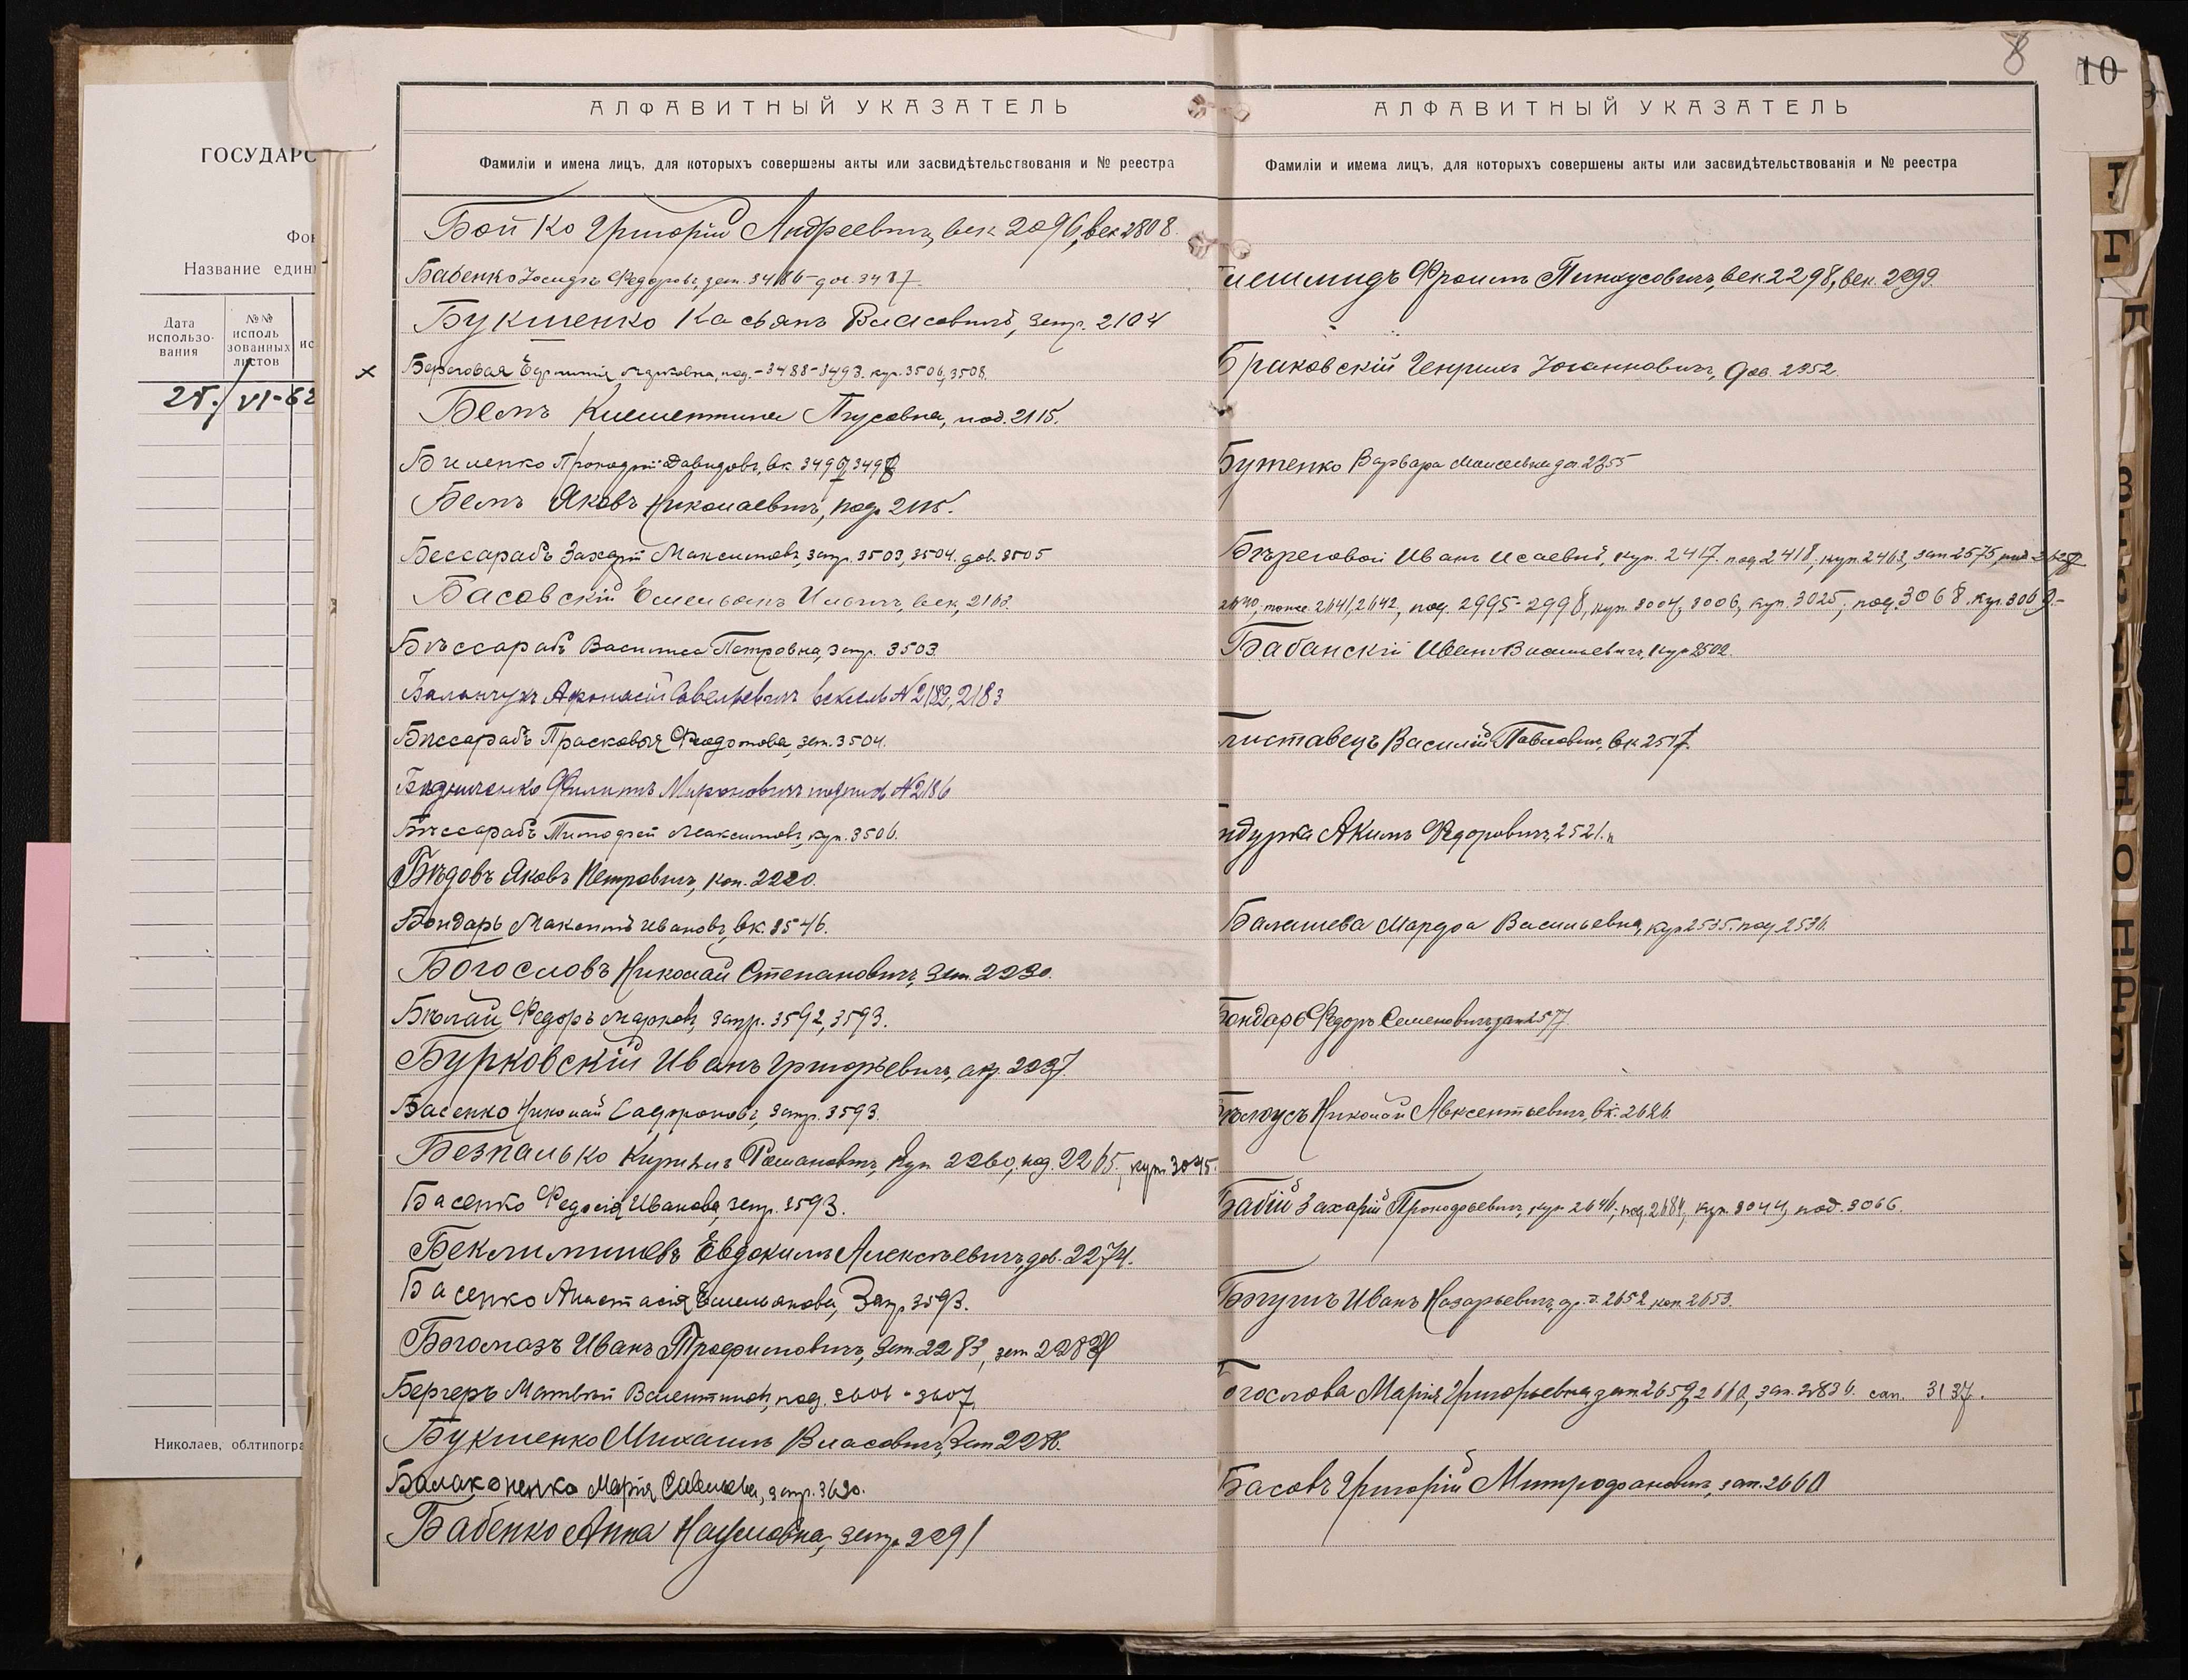 ГОСУДАРС
Фон
Название един
Дата использо-вания
№№ исполь зованных листов
ис
25. VI-62
Николаев, облтипогра
8
10
АЛФАВИТНЫЙ УКАЗАТЕЛЬ
Фамиліи и имена лицъ, для которыхъ совершены акты или засвидѣтельствованія и № реестра
Бойко Григорій Андреевичъ, век 2096, век 2808.
Бабенко Іосифъ Федоровъ, зап. 3486 - дог. 3487.
Букшенко Касьянъ Власовичъ, запр. 2104
× Береговая Евфимія Марковна, под. - 3488-3493. куп. 3506, 3508.
Бемъ Клементина, под. 2115.
Биленко Прокофій Давидовъ, вк. 3497
Бемъ Яковъ Николаевичъ, подр 2115.
Бессарабъ Захарій Максимовъ, запр. 3503, 3504. дов. 3505
Басовскій Емельянъ Ильичъ, век. 2163.
Бѣссарабъ Василиса Петровна, запр. 3503.
Баланчукъ Афонасій Савельевичъ вексель № 2182, 2183
Бѣссарабъ Прасковья Федотова, зап. 3504.
Бедниченко Филиппъ Мироновичъ подпись № 2186
Бѣссарабъ Тимофей Максимовъ, куп. 3506.
Бѣдовъ Яковъ Петровичъ, коп. 2220.
Бондарь Максимъ Ивановъ, вк. 3546.
Богословъ Николай Степановичъ, зап. 2230.
Бѣлай Федоръ Марковъ, запр. 3592, 3593.
Бурковскій Иванъ Григорьевичъ, 2237.
Басенко Николай Сафроновъ, запр. 3593.
Безпалько Кириллъ Романовичъ, куп 2260, под. 2265, куп. 3045.
Басенко Федосія Иванова, запр. 3593.
Беклимишевъ Евдокимъ Алексѣевичъ, дов. 2274.
Басенко Анастасія Емельянова, Запр. 3593.
Богомазъ Иванъ Трофимовичъ, зап. 2283, зап 2284
Бергеръ Матвѣй Валентиновъ, под. 3606 - 3607.
Букшенко Михаилъ Власовичъ, Зап 2286.
Балаконенко Марія Савельева, запр. 3620.
Бабенко Анна Наумовна, запр. 2291
АЛФАВИТНЫЙ УКАЗАТЕЛЬ
Фамиліи и имема лицъ, для которыхъ совершены акты или засвидѣтельствованія и № реестра
Фроимъ Пинхусовичъ, век 2298, век. 2299.
Браковскій Генрихъ Іоганновичъ, дов. 2352.
Бутенко Варвара Моисеевна дог. 2355
Бѣреговой Иванъ Исаевичъ, куп. 2417. под 2418, куп 2463, зап 2575,
2640, тоже 2641, 2642, под. 2995-2998, куп. 3004, 3006, куп. 3025, под. 3068. куп. 3069.-
Бабанскій Иванъ Васильевичъ, куп 2502.
листавецъ Василій Павловичъ, вк 2517.
ндурка Акимъ Федоровичъ, 2521.
Балашева Марфа Васильевна, куп 2535. под 2536.
Бондарь Федоръ Семеновичъ зап 2577
Бѣлоусъ Николай Авксентьевичъ, вк. 2626
Бабій Захарій Прокофьевичъ, куп 2646, под. 2684, куп. 3044, под. 3066.
Иванъ Назарьевичъ, 2652 коп. 2653.
Богослова Марія Григорьевна, зап 2659, 2660, зап. 2836. сап. 3137.
Басовъ Григорій Митрофановичъ, зап. 2660